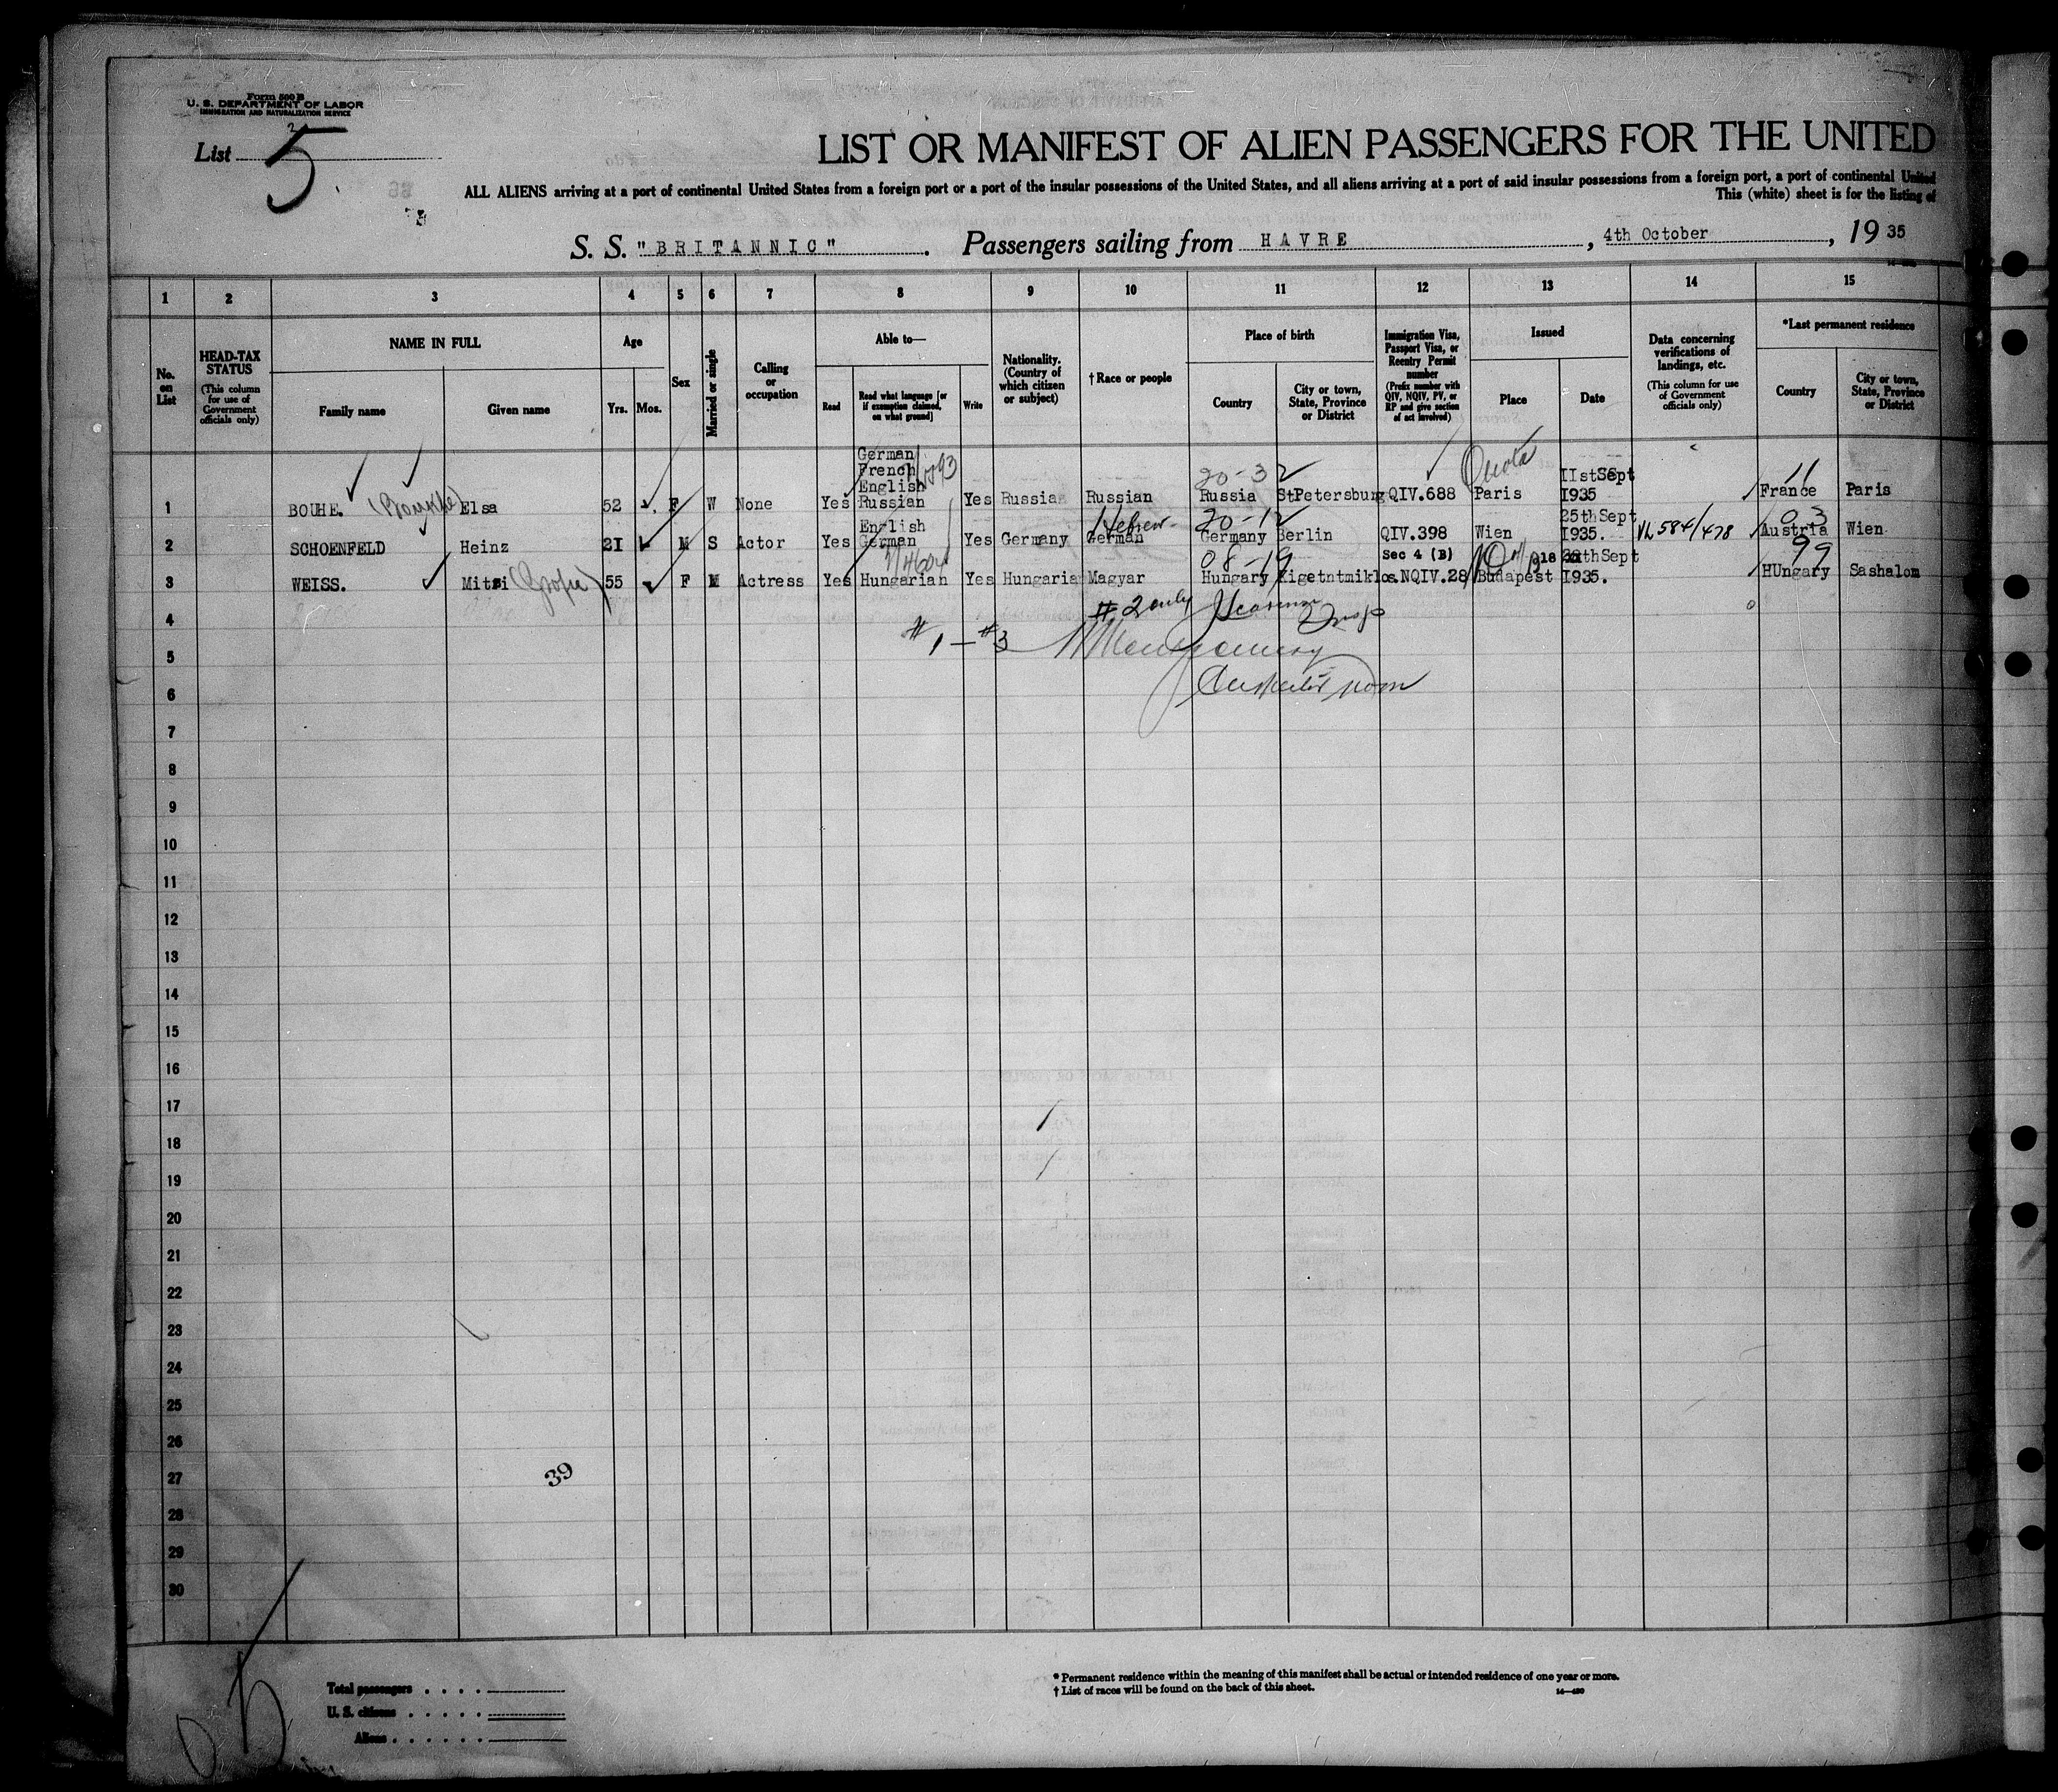 Form 500 B
U. S. DEPARTMENT OF LABOR
IMMIGRATION AND NATURALIZATION SERVICE
List 5
LIST OR MANIFEST OF ALIEN PASSENGERS FOR THE UNITED
ALL ALIENS arriving at a port of continental United States from a foreign port or a port of the insular possessions of the United States, and all aliens arriving at a port of said insular possessions from a foreign port, a port of continental United
This (white) sheet is for the listing of
S. S. "BRITANNIC". Passengers sailing from HAVRE, 4th October, 1935
1 2 3 4 5 6 7 8 9 10 11 12 13 14 15
No. on List
HEAD-TAX STATUS (This column for use of Government officials only)
NAME IN FULL
Family name
Given name
Age
Yrs. Mos.
Sex
Married or single
Calling or occupation
Able to—
Read
Read what language [or if exemption claimed, on what ground]
Write
Nationality. (Country of which citizen or subject)
† Race or people
Place of birth
Country
City or town, State, Province or District
Immigration Visa, Passport Visa, or Reentry Permit number (Prefix number with QIV, NQIV, PV, or RP and give section of act involved)
Issued
Place
Date
Data concerning verifications of landings, etc. (This column for use of Government officials only)
*Last permanent residence
Country
City or town, State, Province or District
German
French
English 20-32 Quota IIst Sept 11
1 BOUHE. Elsa 52 F W None Yes Russian Yes Russia Russian Russia StPetersburg QIV.688 Paris I935 France Paris
English Hebrew 20-12 25th Sept 03
2 SCHOENFELD Heinz 2I M S Actor Yes German Yes Germany German Germany Berlin QIV.398 Wien I935. VL 584/478 Austria Wien
08-19 Sec 4 (B) Sept 99
3 WEISS. Mitzi 55 F M Actress Yes Hungarian Yes Hungaria Magyar Hungary Zigetntmiklos. NQIV.28 Budapest I935. HUngary Sashalom
4 #2 only Insp
5 #1-#3 Montgomery
6
7
8
9
10
11
12
13
14
15
16
17
18
19
20
21
22
23
24
25
26
27
28
29
30
39
Total passengers
U. S. citizens
Aliens
* Permanent residence within the meaning of this manifest shall be actual or intended residence of one year or more.
† List of races will be found on the back of this sheet.
14—480